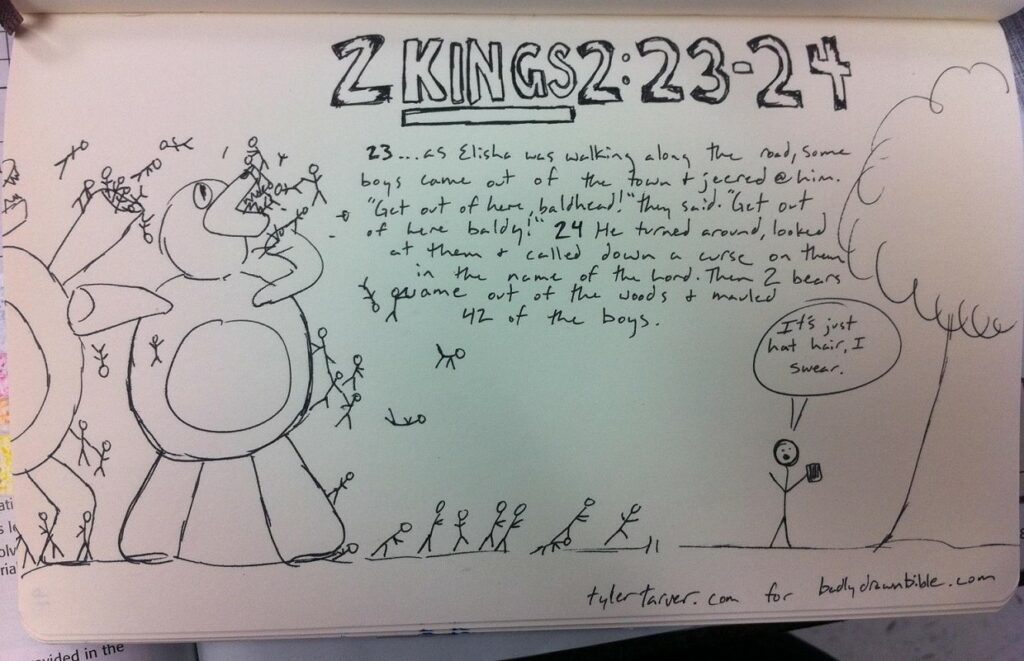 2 KINGS 2:23-24
23...as Elisha was walking along the road, some
boys came out of the town + jeered @ him.
"Get out of here, baldhead!" they said. "Get out
of here baldy!" 24 He turned around, looked
at them + called down a curse on them
in the name of the Lord. Then 2 bears
came out of the woods + mauled
42 of the boys.
It's just
hat hair, I
swear.
tylertarver.com for badlydrawnbible.com
vided in the